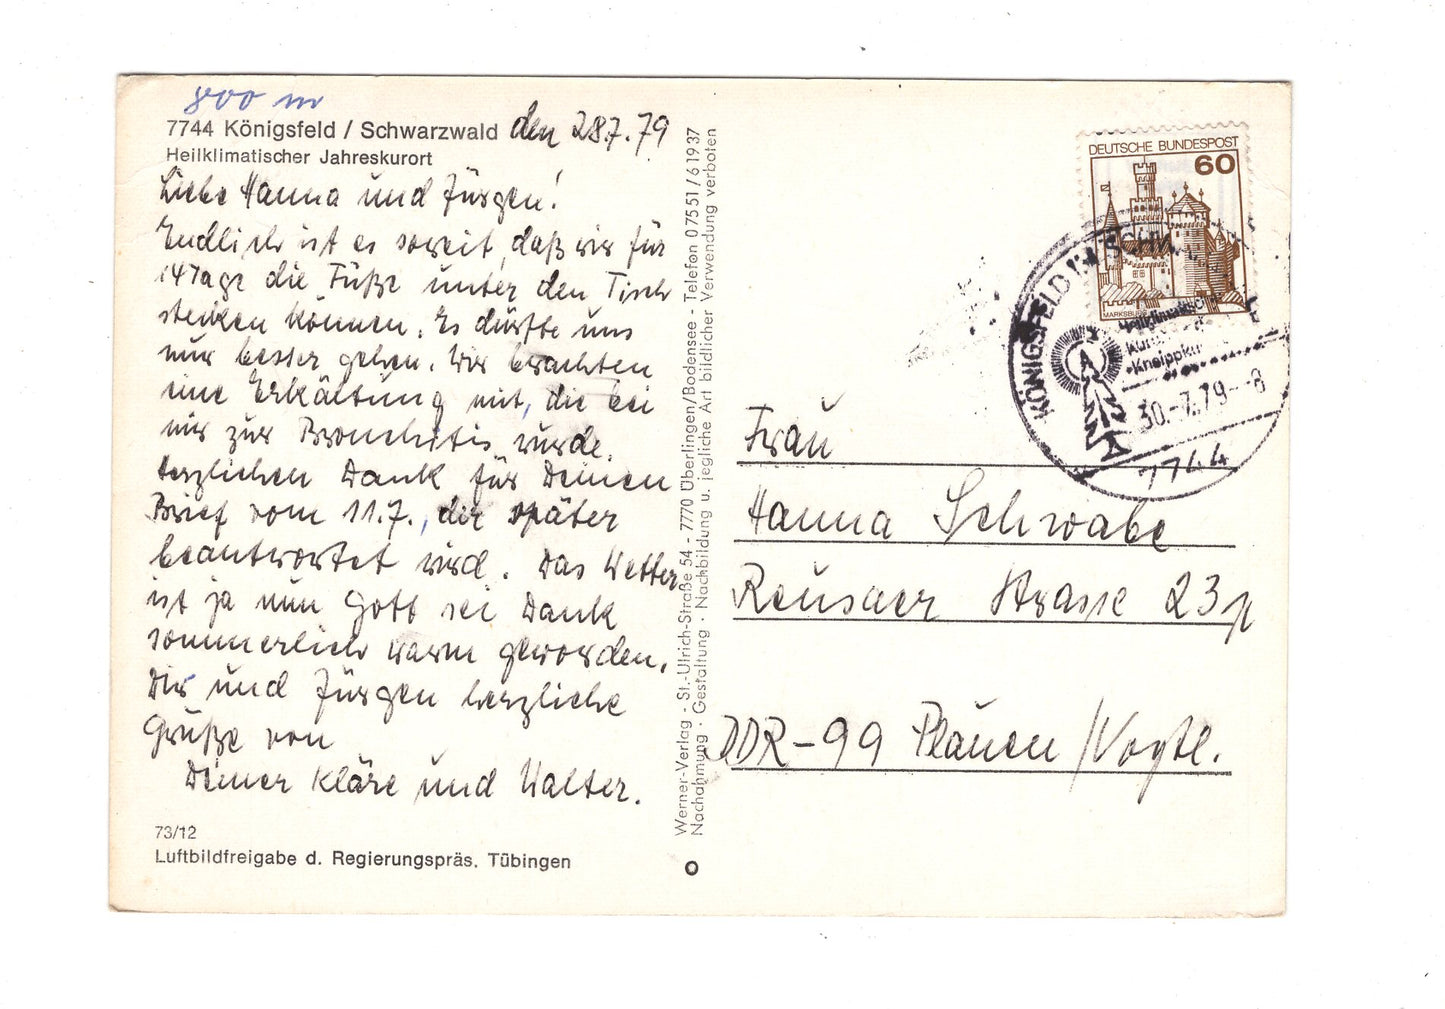 800 m
7744 Königsfeld / Schwarzwald den 28.7.79
Heilklimatischer Jahreskurort
Liebe Hanna und Jürgen!
Endlich ist es soweit, daß wir für
14 Tage die Füße unter den Tisch
stecken können. Es dürfte uns
nur besser gehen. Wir brachten
eine Erkältung mit, die bei
mir zur Bronchitis wurde.
Herzlichen Dank für Deinen
Brief vom 11.7., der später
beantwortet wird. Das Wetter
ist ja nun Gott sei Dank
sommerlich warm geworden.
Dir und Jürgen herzliche
Grüße von
Deiner Kläre und Walter.
73/12
Luftbildfreigabe d. Regierungspräs. Tübingen
Werner-Verlag - St.-Ulrich-Straße 54 - 7770 Überlingen/Bodensee - Telefon 07551/61937
Nachahmung · Gestaltung · Nachbildung u. jegliche Art bildlicher Verwendung verboten
DEUTSCHE BUNDESPOST
60
MARKSBURG
KÖNIGSFELD IM SCHW
Heilklimatischer
Kneippkur
30.-7.79--8
7744
Frau
Hanna Schwabe
Reusaer Strasse 23
DDR-99 Plauen/Vogtl.